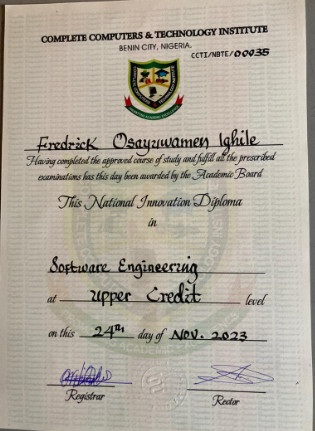 COMPLETE COMPUTERS & TECHNOLOGY INSTITUTE
BENIN CITY, NIGERIA.
CCTI/NBTE/00035
Fredrick Osayuwamen Ighile
Having completed the approved course of study and fulfill all the prescribed
examinations has this day been awarded by the Academic Board
This National Innovation Diploma
in
Software Engineering
at Upper Credit level
on this 24th day of NOV. 2023
Registrar
Rector